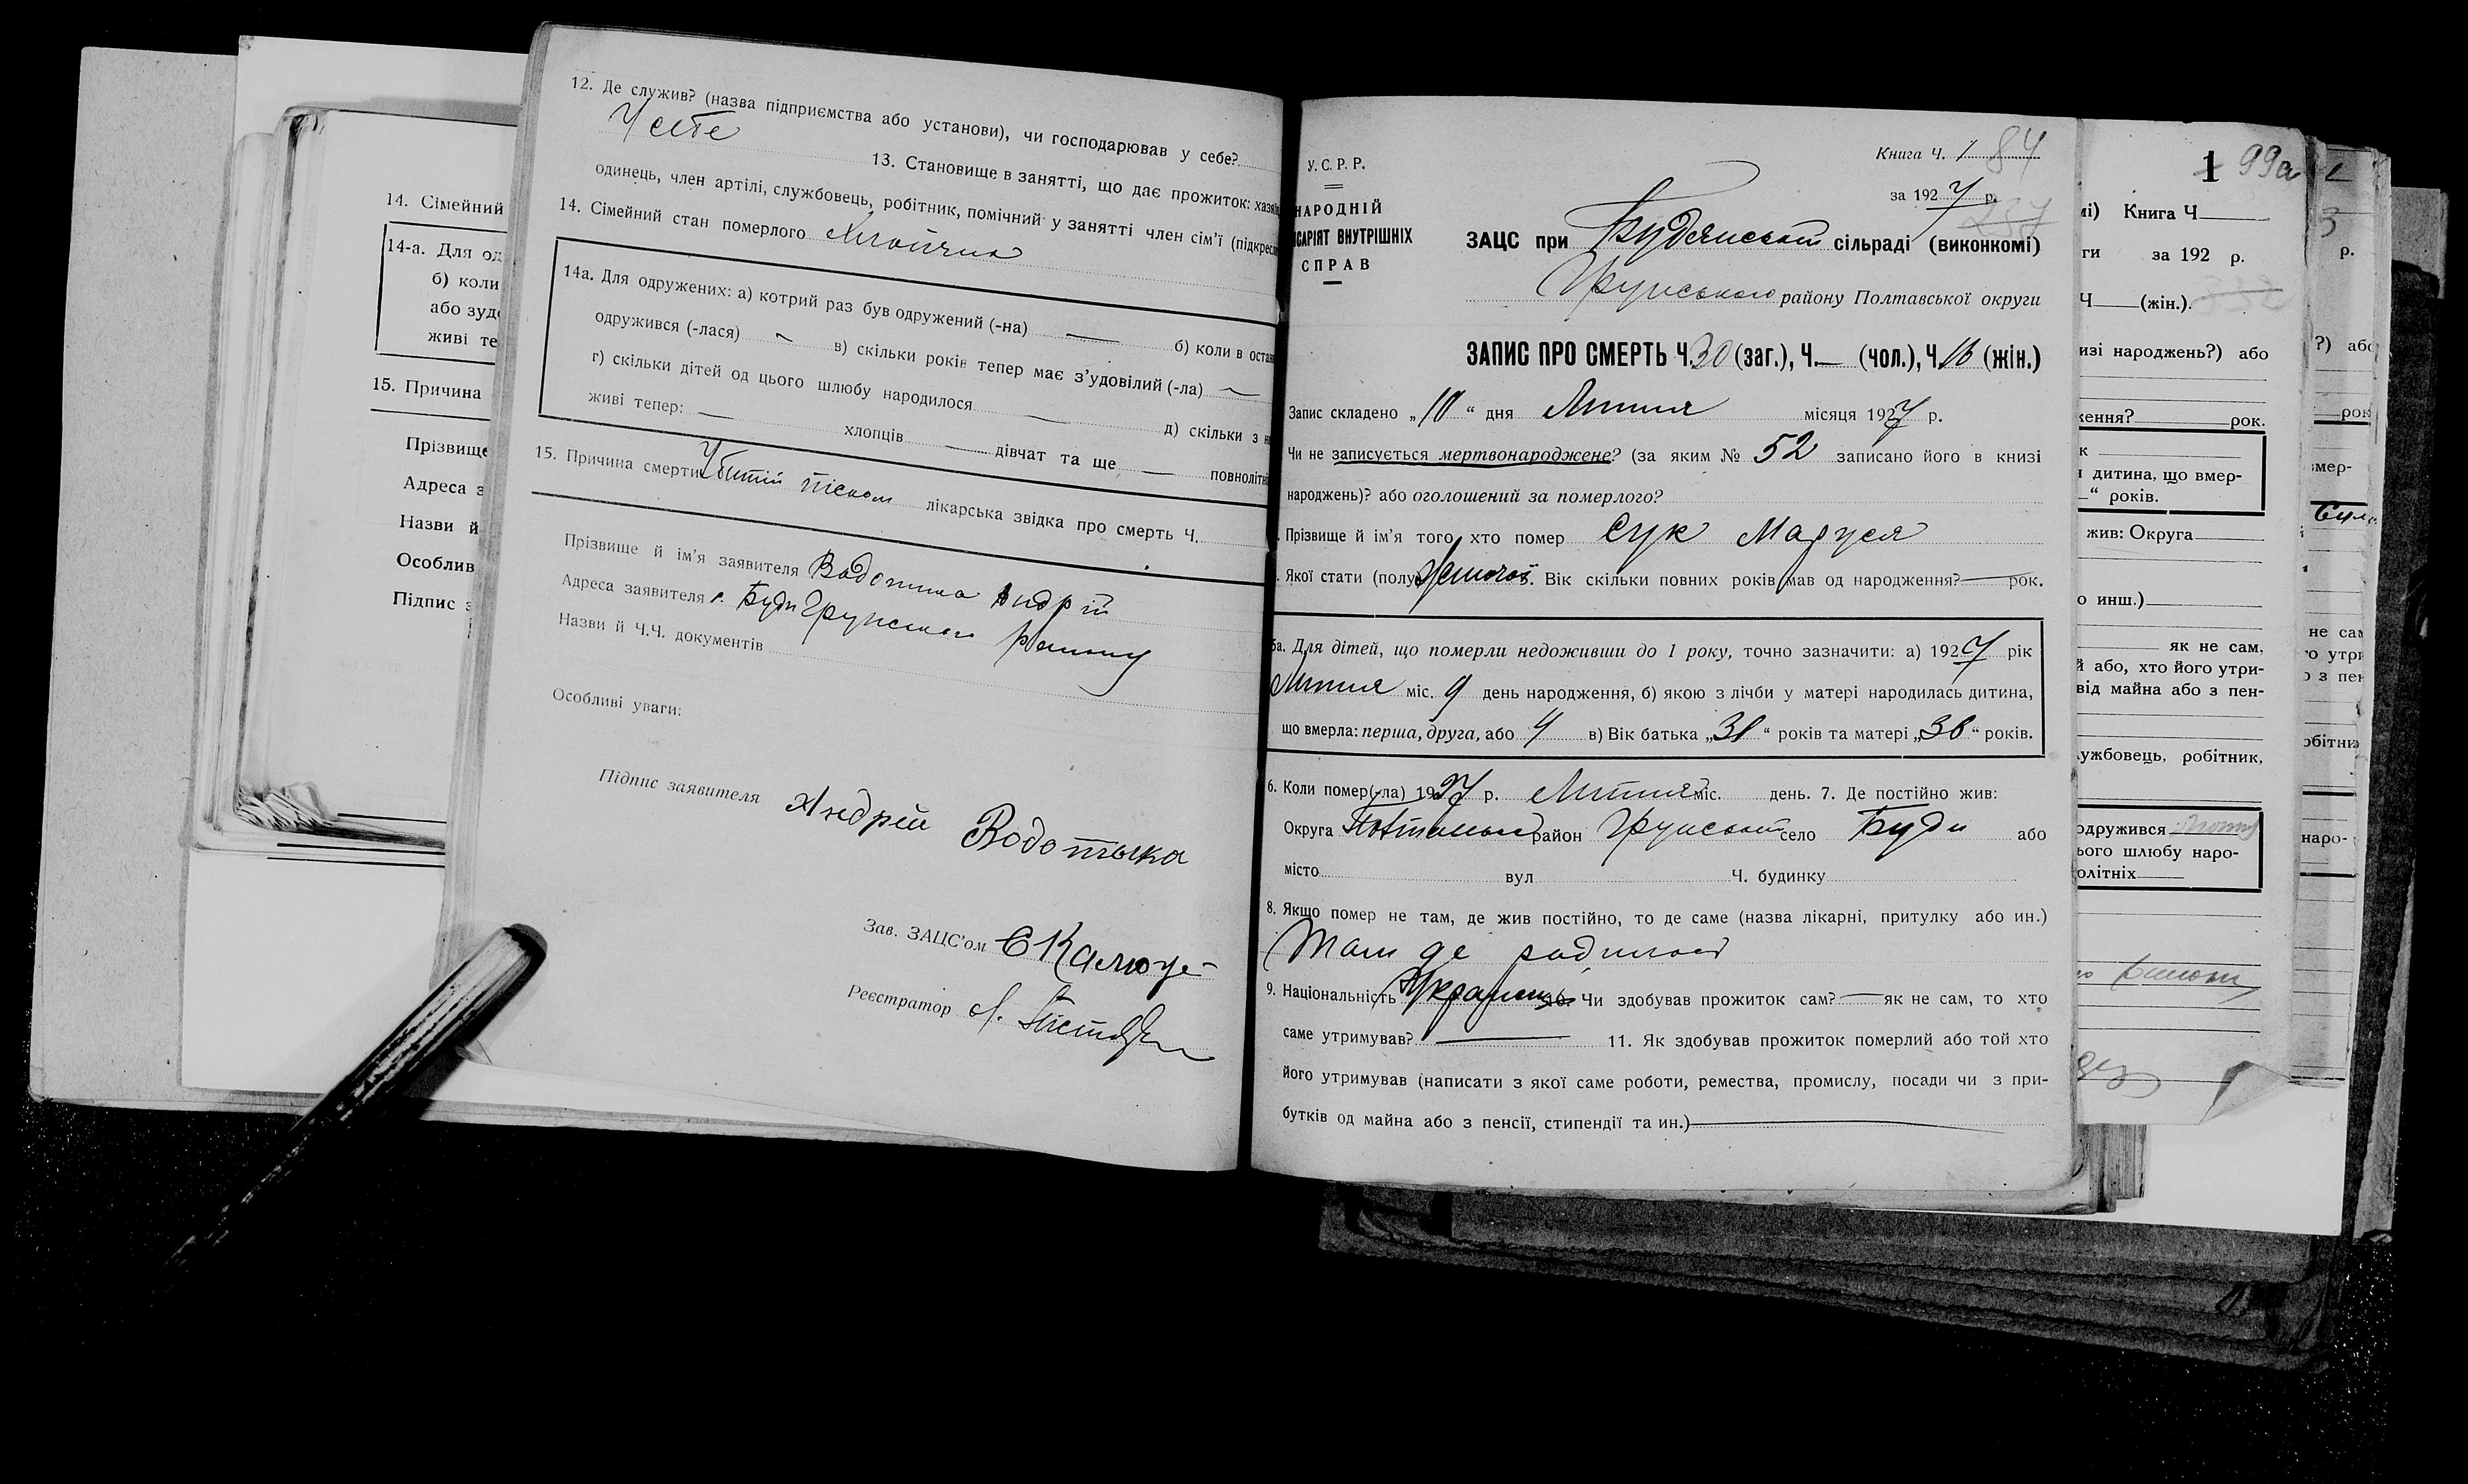 14. Сімейний
14-а. Для од
б) коли
або зудо
живі те
15. Причина
Прізвище
Адреса з
Назви й
Особлив
Підпис з
12. Де служив? (назва підприємства або установи), чи господарював у себе?
У себе
13. Становище в занятті, що дає прожиток: хазяїн,
одинець, член артілі, службовець, робітник, помічний у занятті член сім'ї (підкресл
14. Сімейний стан померлого Хлопчик
14а. Для одружених: а) котрий раз був одружений (-на) — б) коли в остан
одружився (-лася) — в) скільки років тепер має з'удовілий (-ла) —
г) скільки дітей од цього шлюбу народилося — д) скільки з н
живі тепер: — хлопців — дівчат та ще — повнолітні
15. Причина смерти Убитий піском лікарська звідка про смерть Ч.
Прізвище й ім'я заявителя Водотика Андрій
Адреса заявителя с. Буди Грунського району
Назви й Ч.Ч. документів
Особливі уваги:
Підпис заявителя Андрей Водотыка
Зав. ЗАЦС'ом
Реєстратор
Книга Ч. 1 84
У.С.Р.Р.
за 1927 р.
237
НАРОДНІЙ
ІСАРІЯТ ВНУТРІШНІХ
СПРАВ
ЗАЦС при Будянській сільраді (виконкомі)
Грунського району Полтавської округи
ЗАПИС ПРО СМЕРТЬ Ч. 30 (заг.), Ч. — (чол.), Ч. 16 (жін.)
Запис складено „10“ дня Липня місяця 1927 р.
Чи не записується мертвонароджене? (за яким № 52 записано його в книзі
народжень)? або оголошений за померлого?
Прізвище й ім'я того хто помер Сук Маруся
Якої стати (полу) Жіночої. Вік скільки повних років мав од народження? — рок.
5а. Для дітей, що померли недоживши до 1 року, точно зазначити: а) 1927 рік
Липня міс. 9 день народження, б) якою з лічби у матері народилась дитина,
що вмерла: перша, друга, або 4 в) Вік батька „31“ років та матері „36“ років.
6. Коли помер(-ла) 1927 р. Липня міс. день. 7. Де постійно жив:
Округа Полтавська район Грунський село Буди або
місто вул Ч. будинку
8. Якщо помер не там, де жив постійно, то де саме (назва лікарні, притулку або ин.)
Там де родилась
9. Національність Українець 10. Чи здобував прожиток сам? — як не сам, то хто
саме утримував? — 11. Як здобував прожиток померлий або той хто
його утримував (написати з якої саме роботи, ремества, промислу, посади чи з при-
бутків од майна або з пенсії, стипендії та ин.) —
1 99а
мі) Книга Ч
ги за 192 р.
Ч (жін.).
изі народжень?) або
ження? рок.
к
я дитина, що вмер-
“ років.
жив: Округа
о инш.)
як не сам,
й або, хто його утри-
від майна або з пен-
лужбовець, робітник,
одружився
ього шлюбу наро-
олітніх
3
р.
?) або
рок
вмер-
не сам
го утри
о з пен
обітник
наро-